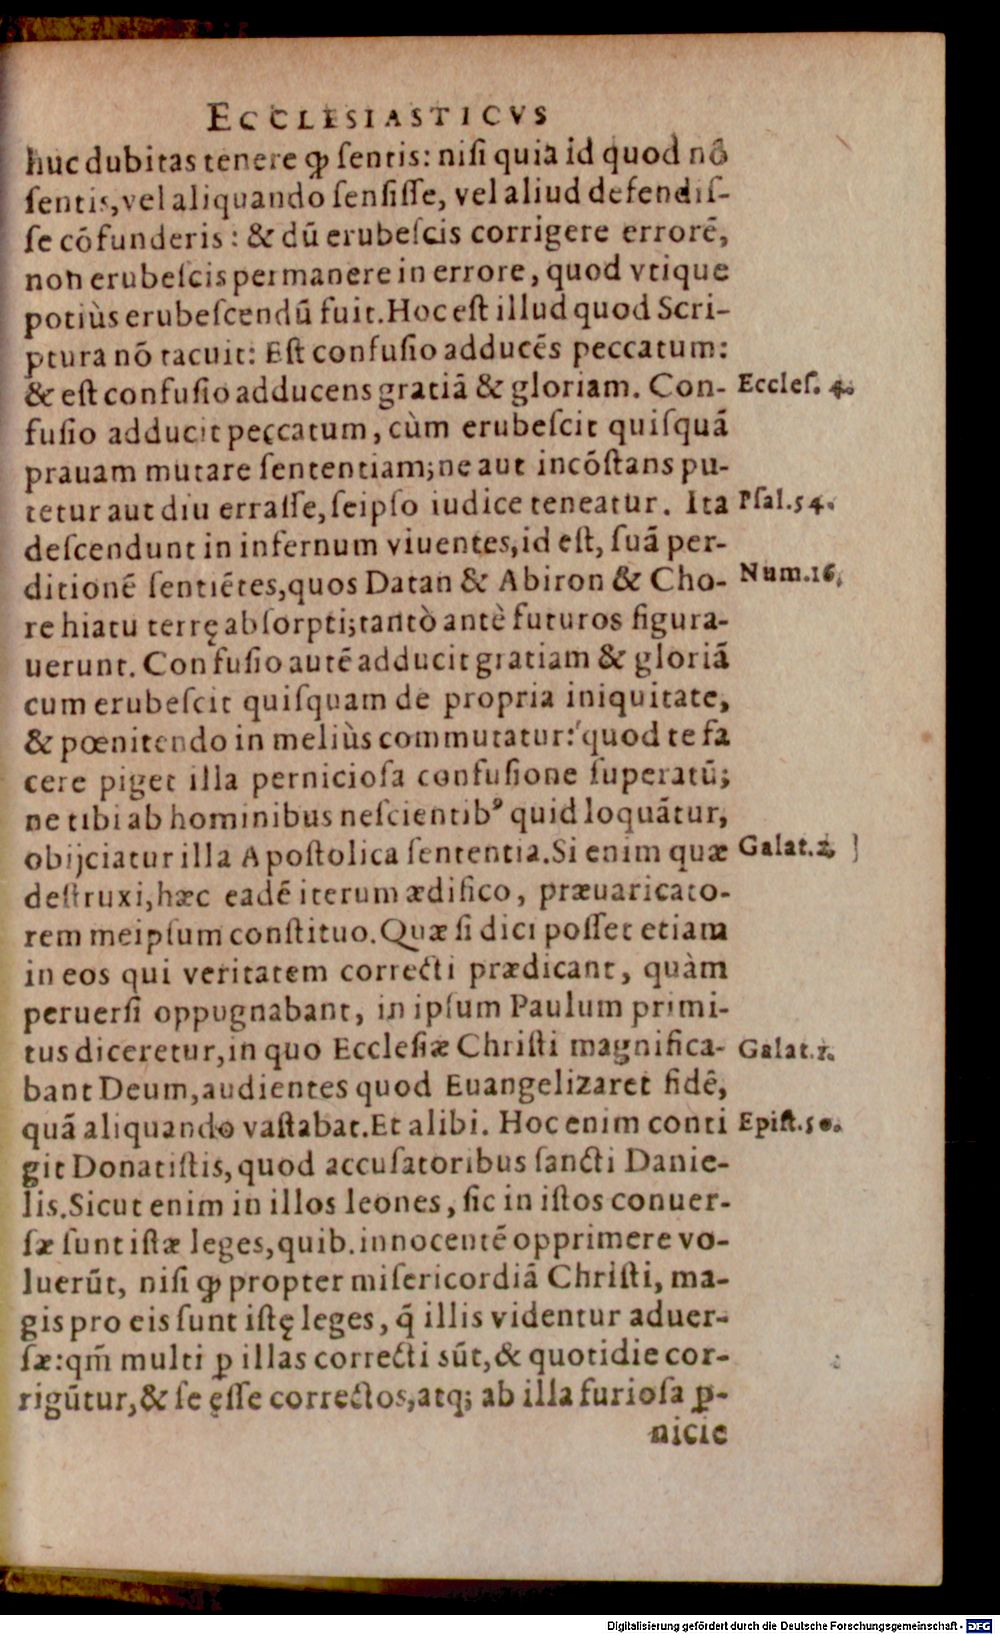 ECCLESIASTICVS
huc dubitas tenere ꝙ ſentis: niſi quia id quod nō
ſentis, vel aliquando ſenſiſſe, vel aliud defendiſ-
ſe cōfunderis: & dū erubeſcis corrigere errorē,
non erubeſcis permanere in errore, quod vtique
potiùs erubeſcendū fuit. Hoc eſt illud quod Scri-
ptura nō tacuit: Eſt confuſio adducēs peccatum:
& eſt confuſio adducens gratiā & gloriam. Con- Eccleſ. 4.
fuſio adducit peccatum, cùm erubeſcit quiſquā
prauam mutare ſententiam; ne aut incōſtans pu-
tetur aut diu erraſſe, ſeipſo iudice teneatur. Ita Pſal. 54.
deſcendunt in infernum viuentes, id eſt, ſuā per-
ditionē ſentiētes, quos Datan & Abiron & Cho- Num. 16.
re hiatu terrę abſorpti; tantò antè futuros figura-
uerunt. Confuſio autē adducit gratiam & gloriā
cum erubeſcit quiſquam de propria iniquitate,
& pœnitendo in meliùs commutatur: quod te fa
cere piget illa pernicioſa confuſione ſuperatū;
ne tibi ab hominibus neſcientibꝰ quid loquātur,
obijciatur illa Apoſtolica ſententia. Si enim quæ Galat. 2.
deſtruxi, hæc eadē iterum ædifico, præuaricato-
rem meipſum conſtituo. Quæ ſi dici poſſet etiam
in eos qui veritatem correcti prædicant, quàm
peruerſi oppugnabant, in ipſum Paulum primi-
tus diceretur, in quo Eccleſiæ Chriſti magnifica- Galat. 1.
bant Deum, audientes quod Euangelizaret fidē,
quā aliquando vaſtabat. Et alibi. Hoc enim conti Epiſt. 50.
git Donatiſtis, quod accuſatoribus ſancti Danie-
lis. Sicut enim in illos leones, ſic in iſtos conuer-
ſæ ſunt iſtæ leges, quib. innocentē opprimere vo-
luerūt, niſi ꝙ propter miſericordiā Chriſti, ma-
gis pro eis ſunt iſtę leges, q̄ illis videntur aduer-
ſæ: qm̄ multi ꝑ illas correcti sūt, & quotidie cor-
rigūtur, & ſe ęſſe correctos, atq; ab illa furioſa ꝑ-
nicie
Digitalisierung gefördert durch die Deutsche Forschungsgemeinschaft - DFG